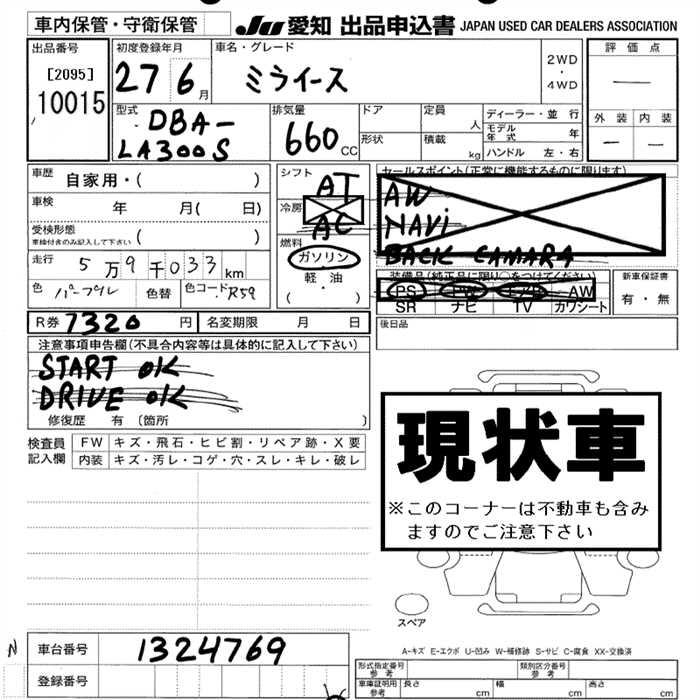 車内保管・守衛保管
JU 愛知 出品申込書 JAPAN USED CAR DEALERS ASSOCIATION
出品番号
[2095]
10015
初度登録年月
27 6月
車名・グレード
ミライース
2WD
・
4WD
評価点
—
外装 内装
— —
型式
DBA-
LA300S
排気量
660 CC
ドア
形状
定員 人
積載 kg
ディーラー・並行
モデル年式 年
ハンドル 左・右
車歴 自家用・( )
車検 年 月( 日)
受検形態
車検付きのみ記入して下さい ( )
走行 5万9千033km
色 パープル 色替 色コード R59
シフト AT
冷房 AC
燃料
ガソリン
軽・油
( )
セールスポイント(正常に機能するものに限ります)
AW
NAVi
BACK CAMARA
装備品(純正品に限り○をつけてください)
PS AW
SR ナビ TV カワシート
新車保証書
有・無
R券 7320 円 名変期限 月 日
後日品
注意事項申告欄(不具合内容等は具体的に記入して下さい)
START OK
DRIVE OK
修復歴 有〔箇所 〕
検査員
記入欄
FW キズ・飛石・ヒビ割・リペア跡・X要
内装 キズ・汚レ・コゲ・穴・スレ・キレ・破レ
現状車
※このコーナーは不動車も含み
ますのでご注意下さい
スペア
A-キズ E-エクボ U-凹み W-補修跡 S-サビ C-腐食 XX-交換済
N
車台番号 1324769
登録番号
形式指定番号
参考
類別区分番号
参考
車庫証明用
参考
長さ cm 幅 cm 高さ cm